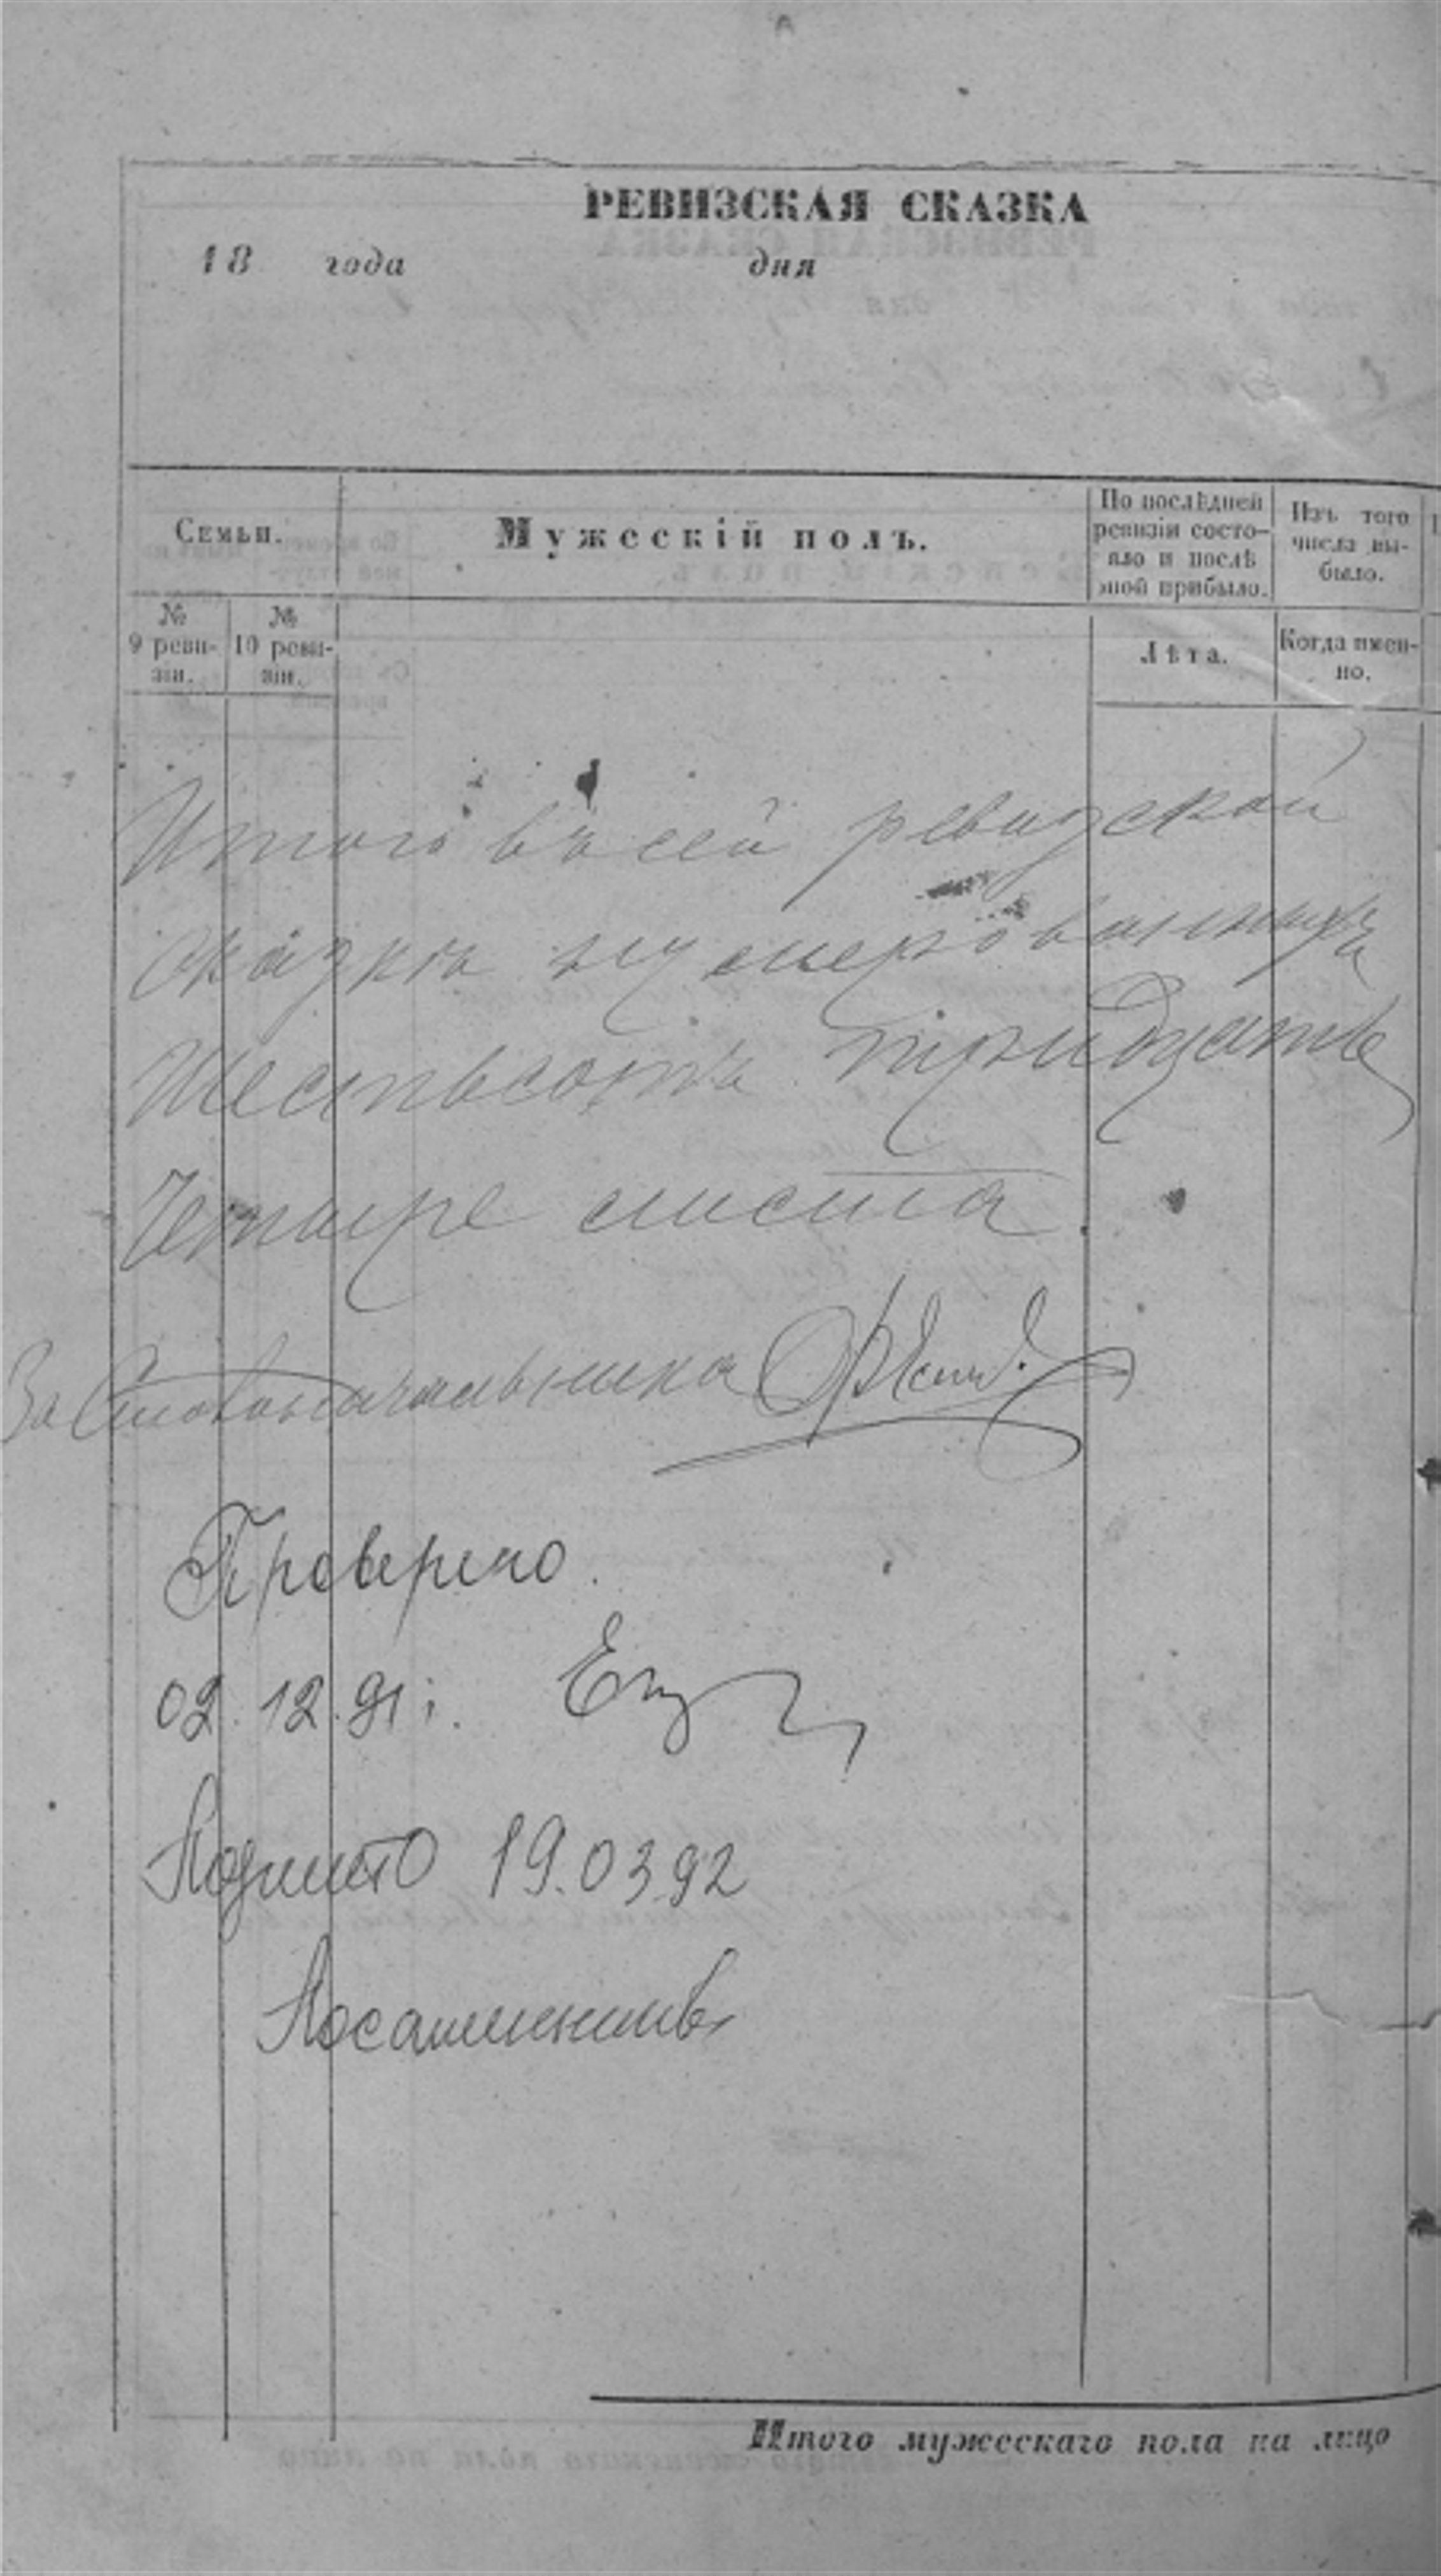 РЕВИЗСКАЯ СКАЗКА
18 года дня
Семьи.
Мужескій полъ.
По послѣдней ревизіи состо-
яло и послѣ
оной прибыло.
Изъ того
числа вы-
было.
№
9 реви-
зіи.
№
10 реви-
зіи.
Лѣта.
Когда имен-
но.
Итого въ сей ревизской
сказкѣ нумерованныхъ
Шестьсотъ тридцать
Четыре листа.
За Столоначальника
Проверено.
02.12.91 г.
Подшито 19.03.92
Итого мужескаго пола на лицо